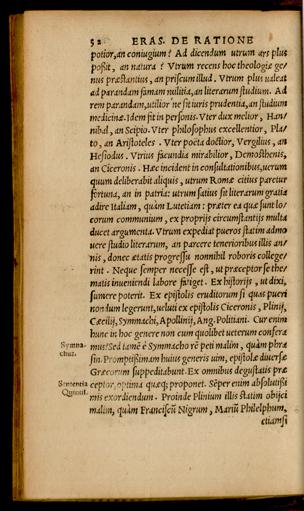 52 ERAS. DE RATIONE
potior, an coniugium? Ad dicendum utrum ars plus
poßit, an natura? Vtrum recens hoc theologiæ ge-
nus præstantius, an priscum illud. Vtrum plus ualeat
ad parandam famam militia, an literarum studium. Ad
rem parandam, utilior ne sit iuris prudentia, an studium
medicinæ. Idem fit in personis. Vter dux melior, Han-
nibal, an Scipio. Vter philosophus excellentior, Pla-
to, an Aristoteles. Vter poeta doctior, Vergilius, an
Hesiodus. Vtrius facundia mirabilior, Demosthenis,
an Ciceronis. Hæc incident in consultationibus, uerum
quum deliberabit aliquis, utrum Romæ citius paretur
fortuna, an in patria: utrum satius sit literarum gratia
adire Italiam, quàm Lutetiam: præter ea quæ sunt lo-
corum communium, ex proprijs circumstantijs multa
ducet argumenta. Vtrum expediat pueros statim admo
uere studio literarum, an parcere tenerioribus illis an-
nis, donec ætatis progressu nonnihil roboris college-
rint. Neque semper necesse est, ut præceptor se the-
matis inueniendi labore fatiget. Ex historijs, ut dixi,
sumere poterit. Ex epistolis eruditorum si quas pueri
nondum legerunt, ueluti ex epistolis Ciceronis, Plinij,
Cæcilij, Symmachi, Apollinij, Ang. Politiani. Cur enim
hunc in hoc genere non cum quolibet ueterum confera
mus? Sed tamē è Symmacho rē peti malim, quàm phra
Symma-
chus.
sin. Promptißimam huius generis uim, epistolæ diuersæ
Græcorum suppeditabunt. Ex omnibus degustatis præ
Sententia
Quintil.
ceptor, optima quæq; proponet. Sēper enim absolutißi
mis exordiendum. Proinde Plinium illis statim obijci
malim, quàm Franciscū Nigrum, Mariū Philelphum,
etiamsi